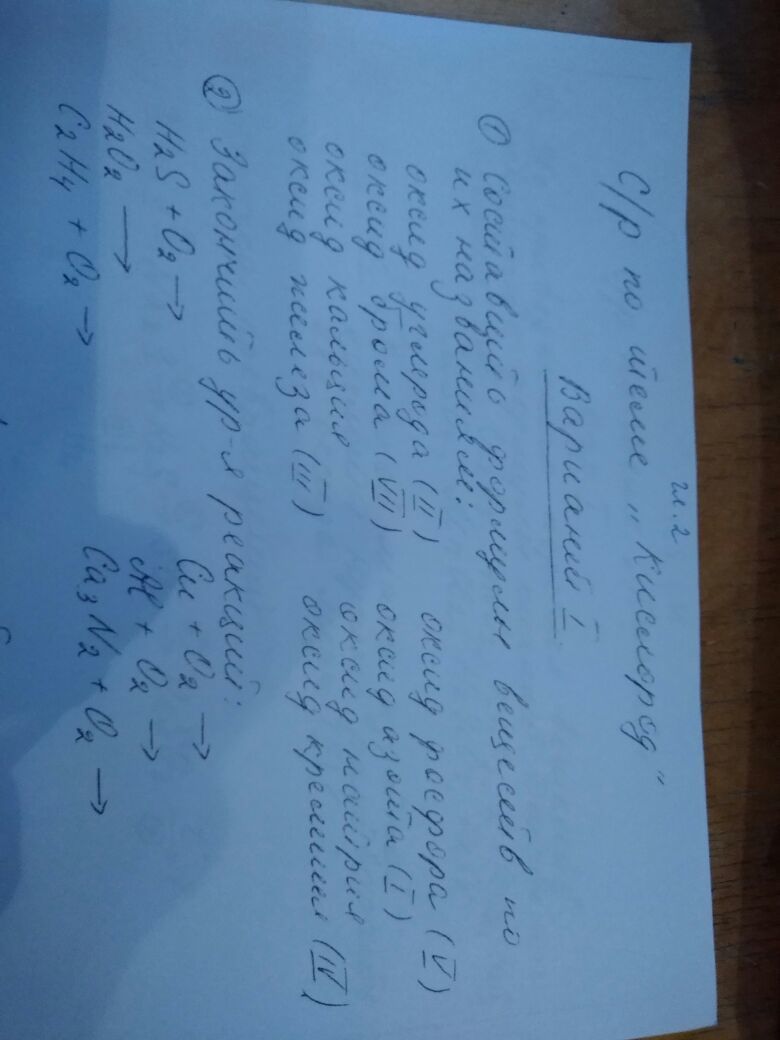 гл. 2
С/р по теме „Кислород"
Вариант I.
① Составить формулы веществ по
их названиям:
оксид углерода (II) оксид фосфора (V)
оксид брома (VII) оксид азота (I)
оксид кальция оксид натрия
оксид железа (III) оксид кремния (IV)
② Закончить ур-я реакций:
H2S + O2 → Cu + O2 →
H2O2 → Al + O2 →
C2H4 + O2 → Ca3N2 + O2 →